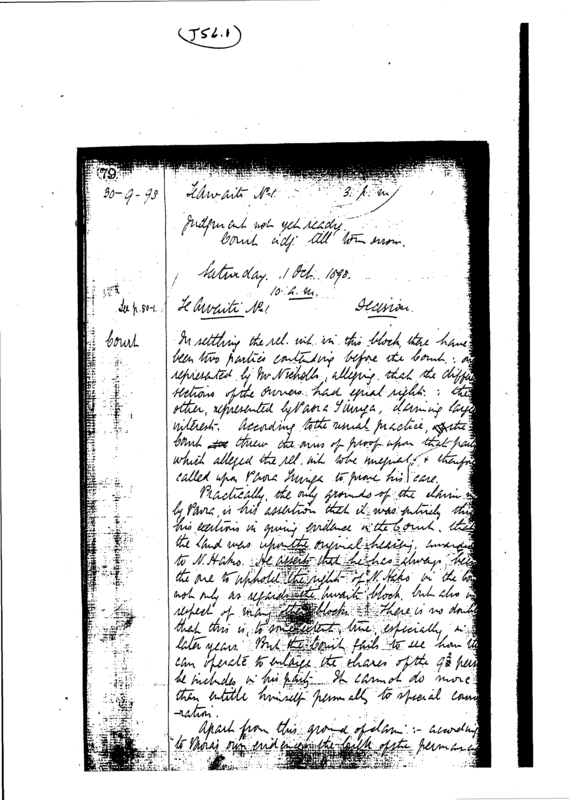 (J56.1)
79
30-9-98 Te Awaite No1. 3. p.m
Judgment not yet ready.
Court adj till tomorrow.
Saturday. 1 Oct. 1898.
10 a.m.
See p. 80-1. Te Awaite No1 Decision
Court In settling the rel. int. in this block, there have
been two parties contending before the Court:
represented by Mr Nicholls, alleging that the diff
sections of the owners had equal right: the
other, represented by Paora Tiunga, claiming larg
interest. According to the usual practice, the
Court threw the onus of proof upon that part
which alleged the rel. int. to be unequal, & therefor
called upon Paora Tiunga to prove his case.
Practically, the only grounds of the claim
by Paora, is his assertion that it was entirely thro
his exertions in giving evidence in the Court, that
the land was upon the original hearing, award
to N. Hako. He asserts that he has always bee
the one to uphold the rights of N. Hako in the
not only as regards the Awaite block, but also in
respect of many other blocks. There is no doub
that this is, to some extent, true, especially in
later years. But the Court fails to see how
can operate to enlarge the shares of the 93 per
he includes in his party. It cannot do more
than entitle himself personally to special con
ration.
Apart from this ground of claim :- according
to Paora's own evidence, the bulk of the permanen